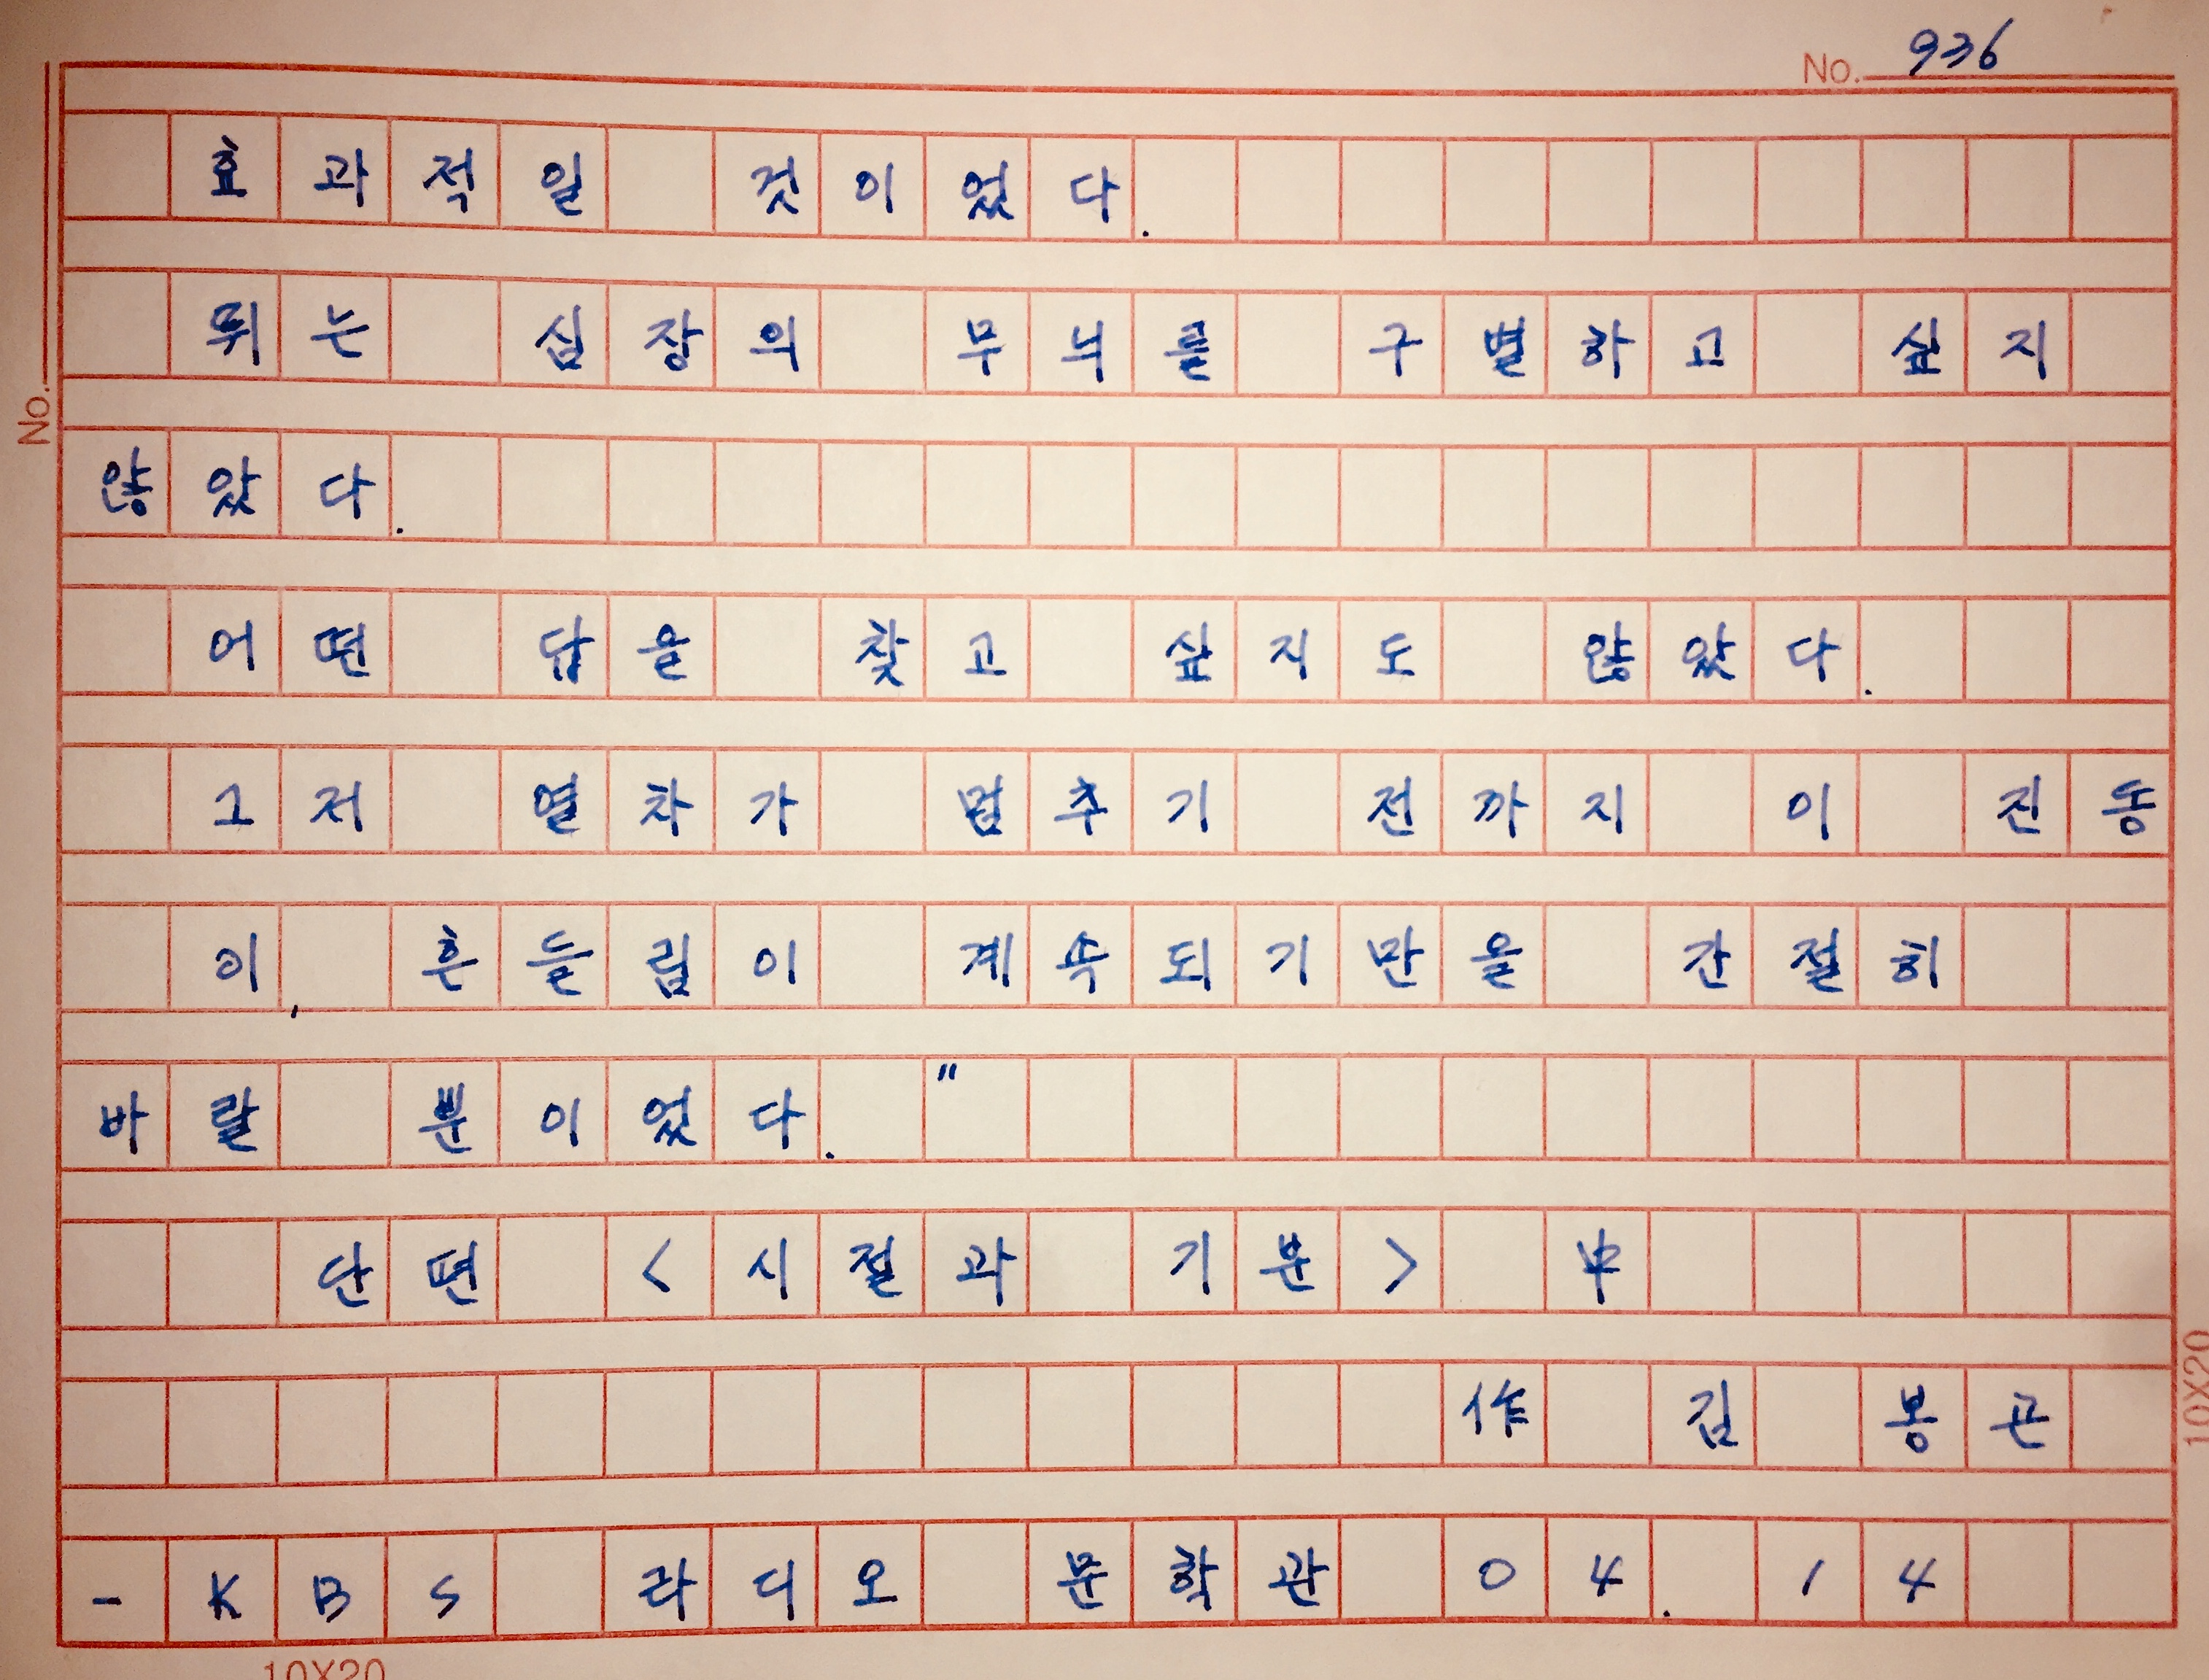 No. 936
효과적일 것이었다.
뛰는 심장의 무늬를 구별하고 싶지
않았다.
어떤 답을 찾고 싶지도 않았다.
그저 열차가 멈추기 전까지 이 진동
이, 흔들림이 계속되기만을 간절히
바랄 뿐이었다."
단편 <시절과 기분> 中
作 김 봉곤
- KBS 라디오 문학관 04. 14
No.
10X20
10X20